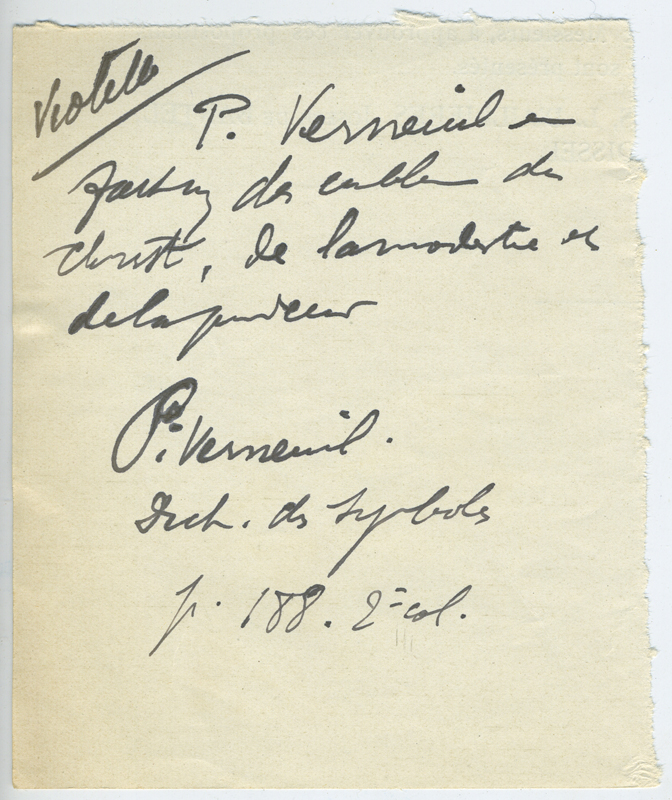 Violette
P. Verneuil en
fait un des emblèmes du
Christ, de la modestie et
de la pudeur
P. Verneuil.
Dict. des Symboles
p. 188. 2e col.